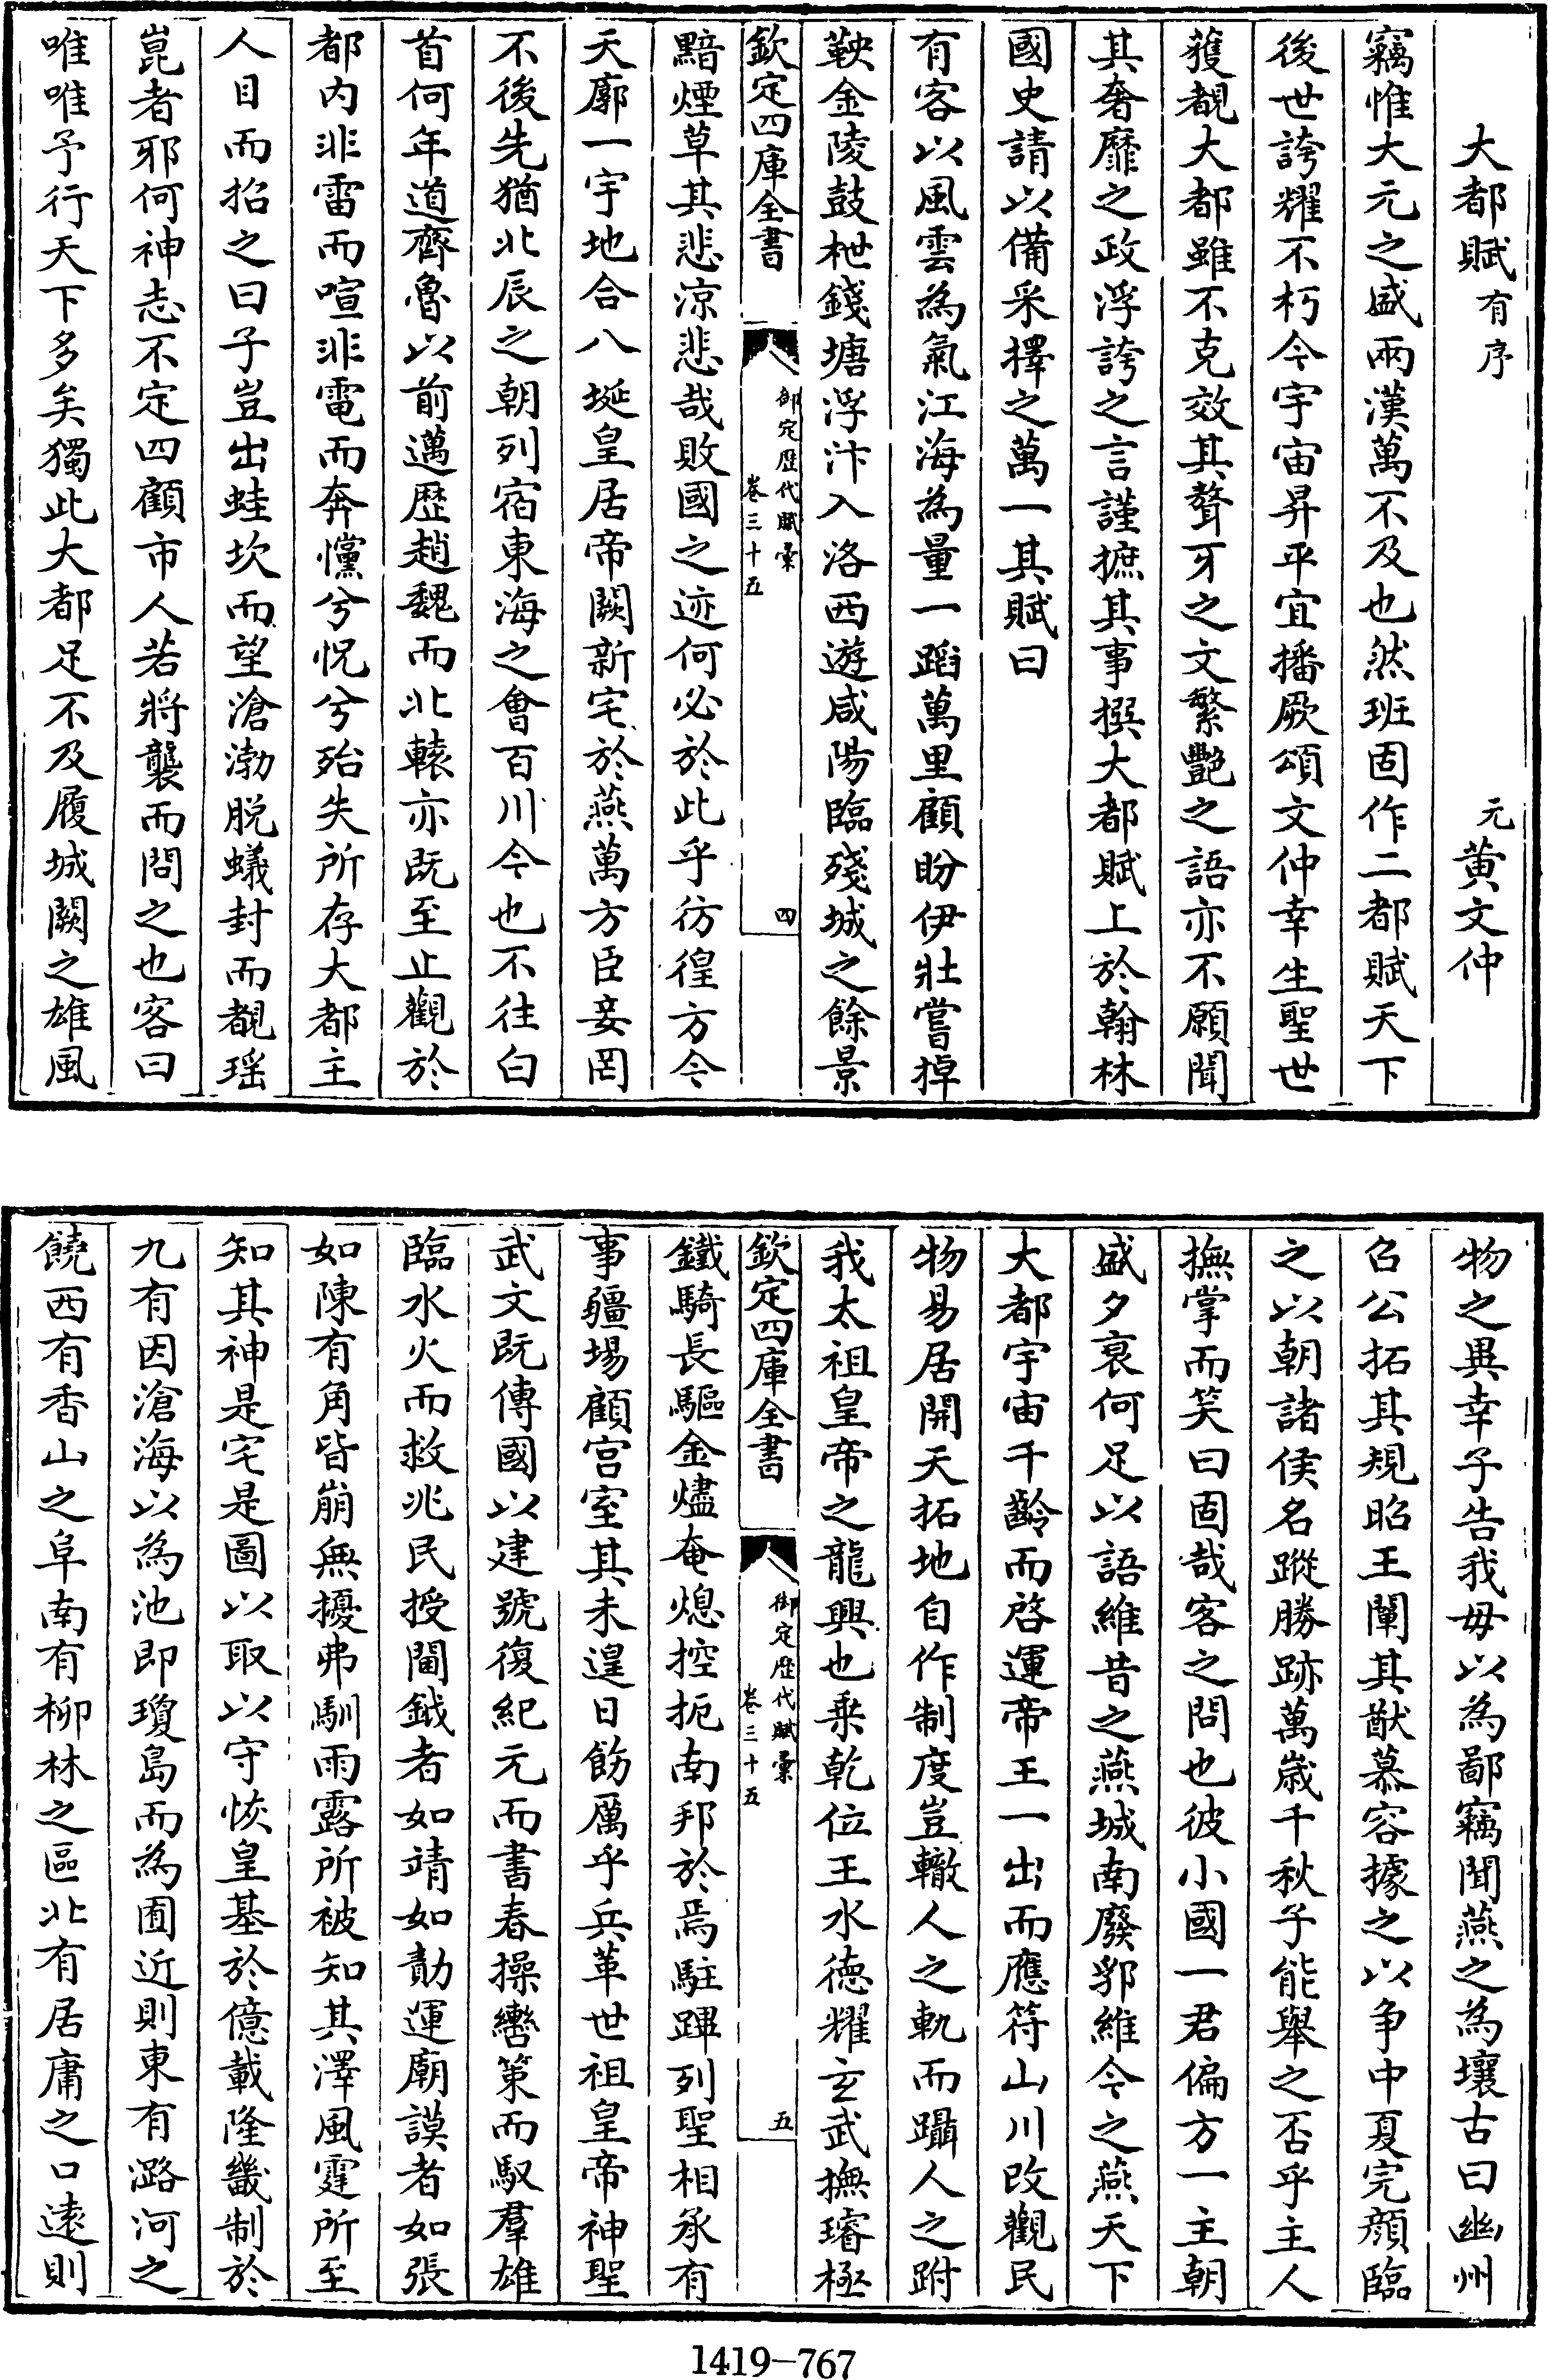 大都賦有序　元黄文仲
竊惟大元之盛兩漢萬不及也然班固作二都賦天下
後世誇耀不朽今宇宙昇平宜播厥頌文仲幸生聖世
獲覩大都雖不克效其聱牙之文繁艷之語亦不願聞
其奢靡之政浮誇之言謹摭其事撰大都賦上於翰林
國史請以備采擇之萬一其賦曰
有客以風雲為氣江海為量一蹈萬里顧盼伊壯嘗掉
鞅金陵鼓枻錢塘浮汴入洛西遊咸陽臨殘城之餘景
欽定四庫全書　御定歷代賦彙卷三十五　四
黯煙草其悲涼悲哉敗國之迹何必於此乎彷徨方今
天廓一宇地合八埏皇居帝闕新宅於燕萬方臣妾罔
不後先猶北辰之朝列宿東海之會百川今也不往白
首何年道齊魯以前邁歴趙魏而北轅亦既至止觀於
都内非雷而喧非電而奔戃兮怳兮殆失所存大都主
人目而招之曰子豈出蛙坎而望滄渤脱蟻封而覩瑶
崑者耶何神志不定四顧市人若將襲而問之也客曰
唯唯予行天下多矣獨此大都足不及履城闕之雄風
物之異幸子告我毋以為鄙竊聞燕之為壤古曰幽州
召公拓其規昭王闡其猷慕容據之以争中夏完顔臨
之以朝諸侯名蹤勝跡萬歳千秋子能舉之否乎主人
撫掌而笑曰固哉客之問也彼小國一君偏方一主朝
盛夕衰何足以語維昔之燕城南廢郛維今之燕天下
大都宇宙千齡而啓運帝王一出而應符山川改觀民
物易居開天拓地自作制度豈轍人之軌而躡人之跗
我太祖皇帝之龍興也乗乾位王水德耀玄武撫璿極
欽定四庫全書　御定歷代賦彙卷三十五　五
鐵騎長驅金燼奄熄控扼南邦於焉駐蹕列聖相承有
事疆場顧宫室其未遑日飭厲乎兵革世祖皇帝神聖
武文既傳國以建號復紀元而書春操轡策而馭羣雄
臨水火而救兆民授閫鉞者如靖如勣運廟謨者如張
如陳有角皆崩無擾弗馴雨露所被知其澤風霆所至
知其神是宅是圖以取以守恢皇基於億載隆畿制於
九有因滄海以為池即瓊島而為囿近則東有潞河之
饒西有香山之阜南有柳林之區北有居庸之口遠則
1419-767